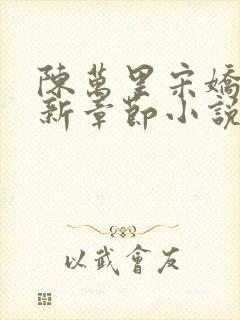 陳萬里宋嬌
新章節小說
以武會友